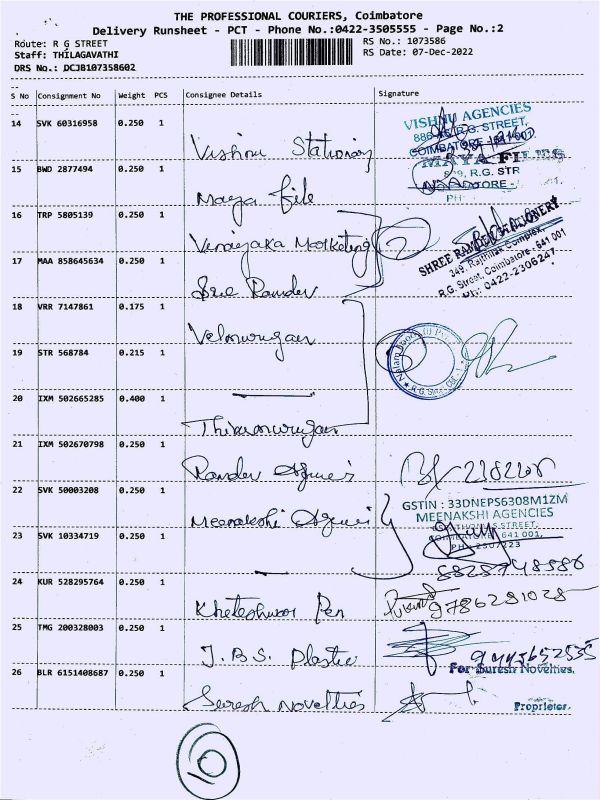 THE PROFESSIONAL COURIERS, Coimbatore
Delivery Runsheet - PCT - Phone No.:0422-3505555 - Page No.:2
Route: R G STREET
RS No.: 1073586
Staff: THILAGAVATHI
RS Date: 07-Dec-2022
DRS No.: DCJB107358602
S No Consignment No Weight PCS Consignee Details Signature
14 SVK 60316958 0.250 1 Vishnu Stationary
VISHNU AGENCIES
R.G. STREET,
COIMBATORE 641 001
15 BWD 2877494 0.250 1 Maya file
MAYA FILES
R.G. STR
PH:
16 TRP 5805139 0.250 1 Vinayaka Marketing
17 MAA 858645634 0.250 1 Sree Ramdev
SHREE RAMDEV STATIONERY
349, Rajthilak Complex,
R.G. Street, Coimbatore - 641 001
PH: 0422-2306247
18 VRR 7147861 0.175 1 Velmurugan
19 STR 568784 0.215 1
20 IXM 502665285 0.400 1 Thirumurugan
21 IXM 502670798 0.250 1 Ramdev Agencies
22 SVK 50003208 0.250 1 Meenakshi Agencies
GSTIN : 33DNEPS6308M1ZM
MEENAKSHI AGENCIES
STREET,
COIMBATORE 641 001,
23 SVK 10334719 0.250 1
24 KUR 528295764 0.250 1 Kheteshwar Pen
9786281028
25 TMG 200328003 0.250 1 J.B.S. Plastic
26 BLR 6151408687 0.250 1 Suresh Novelties
For Suresh Novelties.
Proprietor.
10